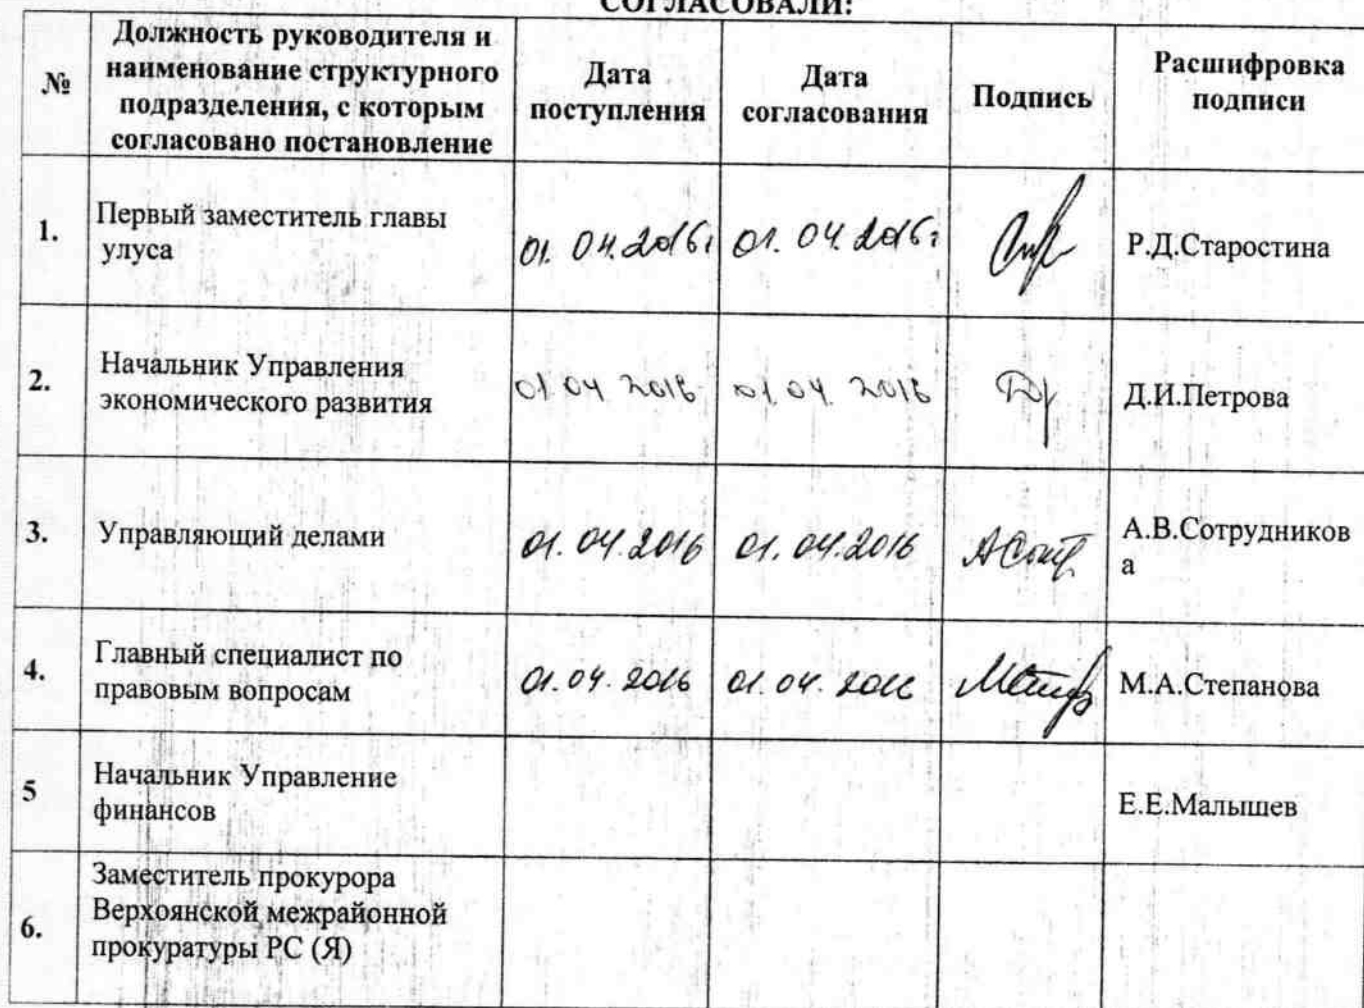 СОГЛАСОВАЛИ:
№
Должность руководителя и
наименование структурного
подразделения, с которым
согласовано постановление
Дата
поступления
Дата
согласования
Подпись
Расшифровка
подписи
1.
Первый заместитель главы
улуса
01.04.2016г
01.04.2016г
Р.Д.Старостина
2.
Начальник Управления
экономического развития
01 04 2016
01.04 2016
Д.И.Петрова
3.
Управляющий делами
01.04.2016
01.04.2016
А.В.Сотрудников
а
4.
Главный специалист по
правовым вопросам
01.04.2016
01.04.2016
М.А.Степанова
5
Начальник Управление
финансов
Е.Е.Малышев
6.
Заместитель прокурора
Верхоянской межрайонной
прокуратуры РС (Я)